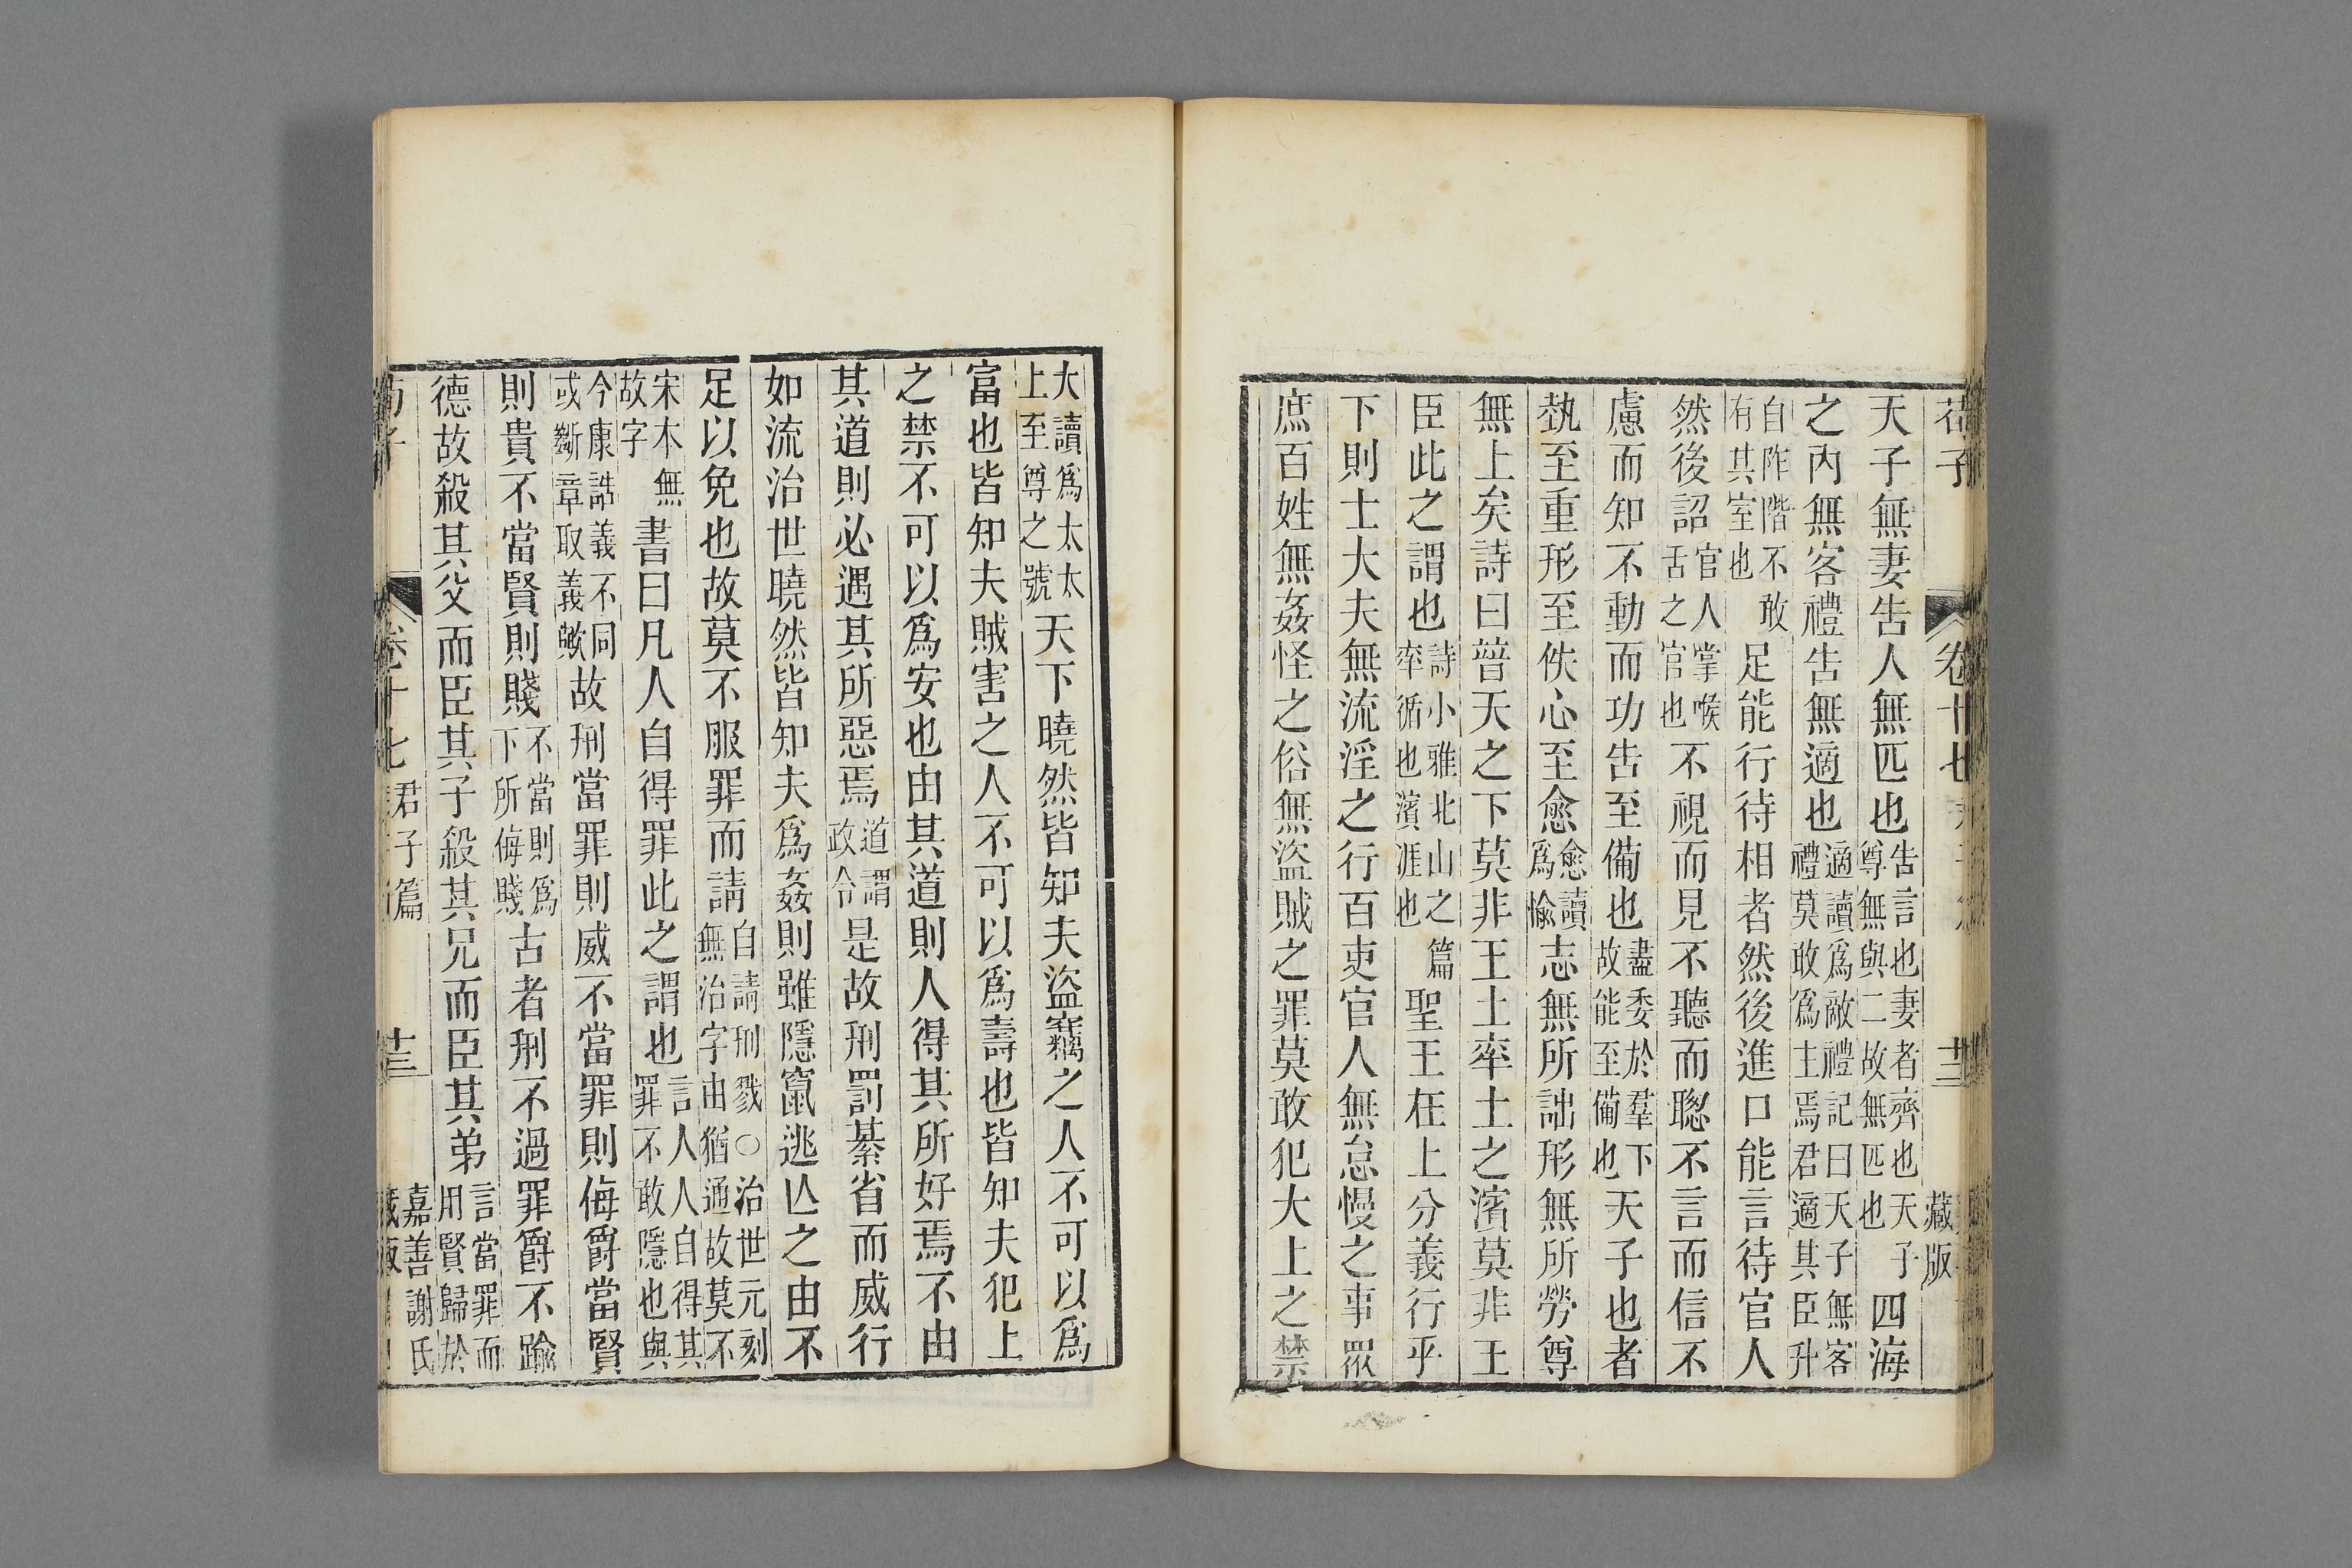 荀子 卷十七 十二 藏版
天子無妻告人無匹也告言也妻者齊也天子尊無與二故無匹也四海
之內無客禮告無適也適讀爲敵禮記曰天子無客禮莫敢爲主焉君適其臣升
自阼階不敢有其室也足能行待相者然後進口能言待官人
然後詔官人掌喉舌之官也不視而見不聽而聰不言而信不
慮而知不動而功告至備也盡委於羣下故能至備也天子也者
埶至重形至佚心至愈愈讀爲愉志無所詘形無所勞尊
無上矣詩曰普天之下莫非王土率土之濱莫非王
臣此之謂也詩小雅北山之篇率循也濱涯也聖王在上分義行乎
下則士大夫無流淫之行百吏官人無怠慢之事眾
庶百姓無姦怪之俗無盜賊之罪莫敢犯大上之禁
大讀爲太太上至尊之號天下曉然皆知夫盜竊之人不可以爲
富也皆知夫賊害之人不可以爲壽也皆知夫犯上
之禁不可以爲安也由其道則人得其所好焉不由
其道則必遇其所惡焉道謂政令是故刑罰綦省而威行
如流治世曉然皆知夫爲姦則雖隱竄逃亾之由不
足以免也故莫不服罪而請自請刑戮○治世元刻無治字由猶通故莫不
宋本無故字書曰凡人自得罪此之謂也言人人自得其罪不敢隱也與
今康誥義不同或斷章取義歟故刑當罪則威不當罪則侮爵當賢
則貴不當賢則賤不當則爲下所侮賤古者刑不過罪爵不踰
德故殺其父而臣其子殺其兄而臣其弟言當罪而用賢歸於
荀子 卷十七 君子篇 十三 嘉善謝氏